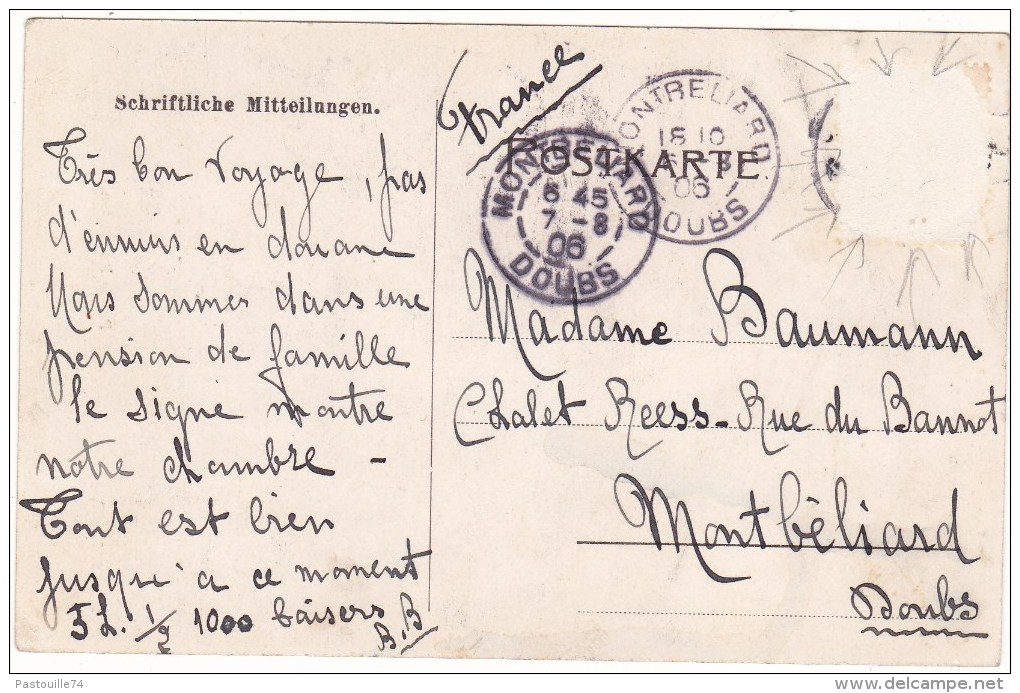 Schriftliche Mitteilungen.
Très bon voyage, pas
d'ennuis en douane
Nous sommes dans une
pension de famille
le signe montre
notre chambre -
Tout est bien
jusqu'à ce moment
5 h. 1/2 1000 baisers
B.B
France
POSTKARTE
MONTBELIARD
6 45
7 - 8
06
DOUBS
MONTBELIARD
18 10
06
DOUBS
Madame Baumann
Chalet Reess - Rue du Bannot
Montbéliard
Doubs
Pastouille74
www.delcampe.net